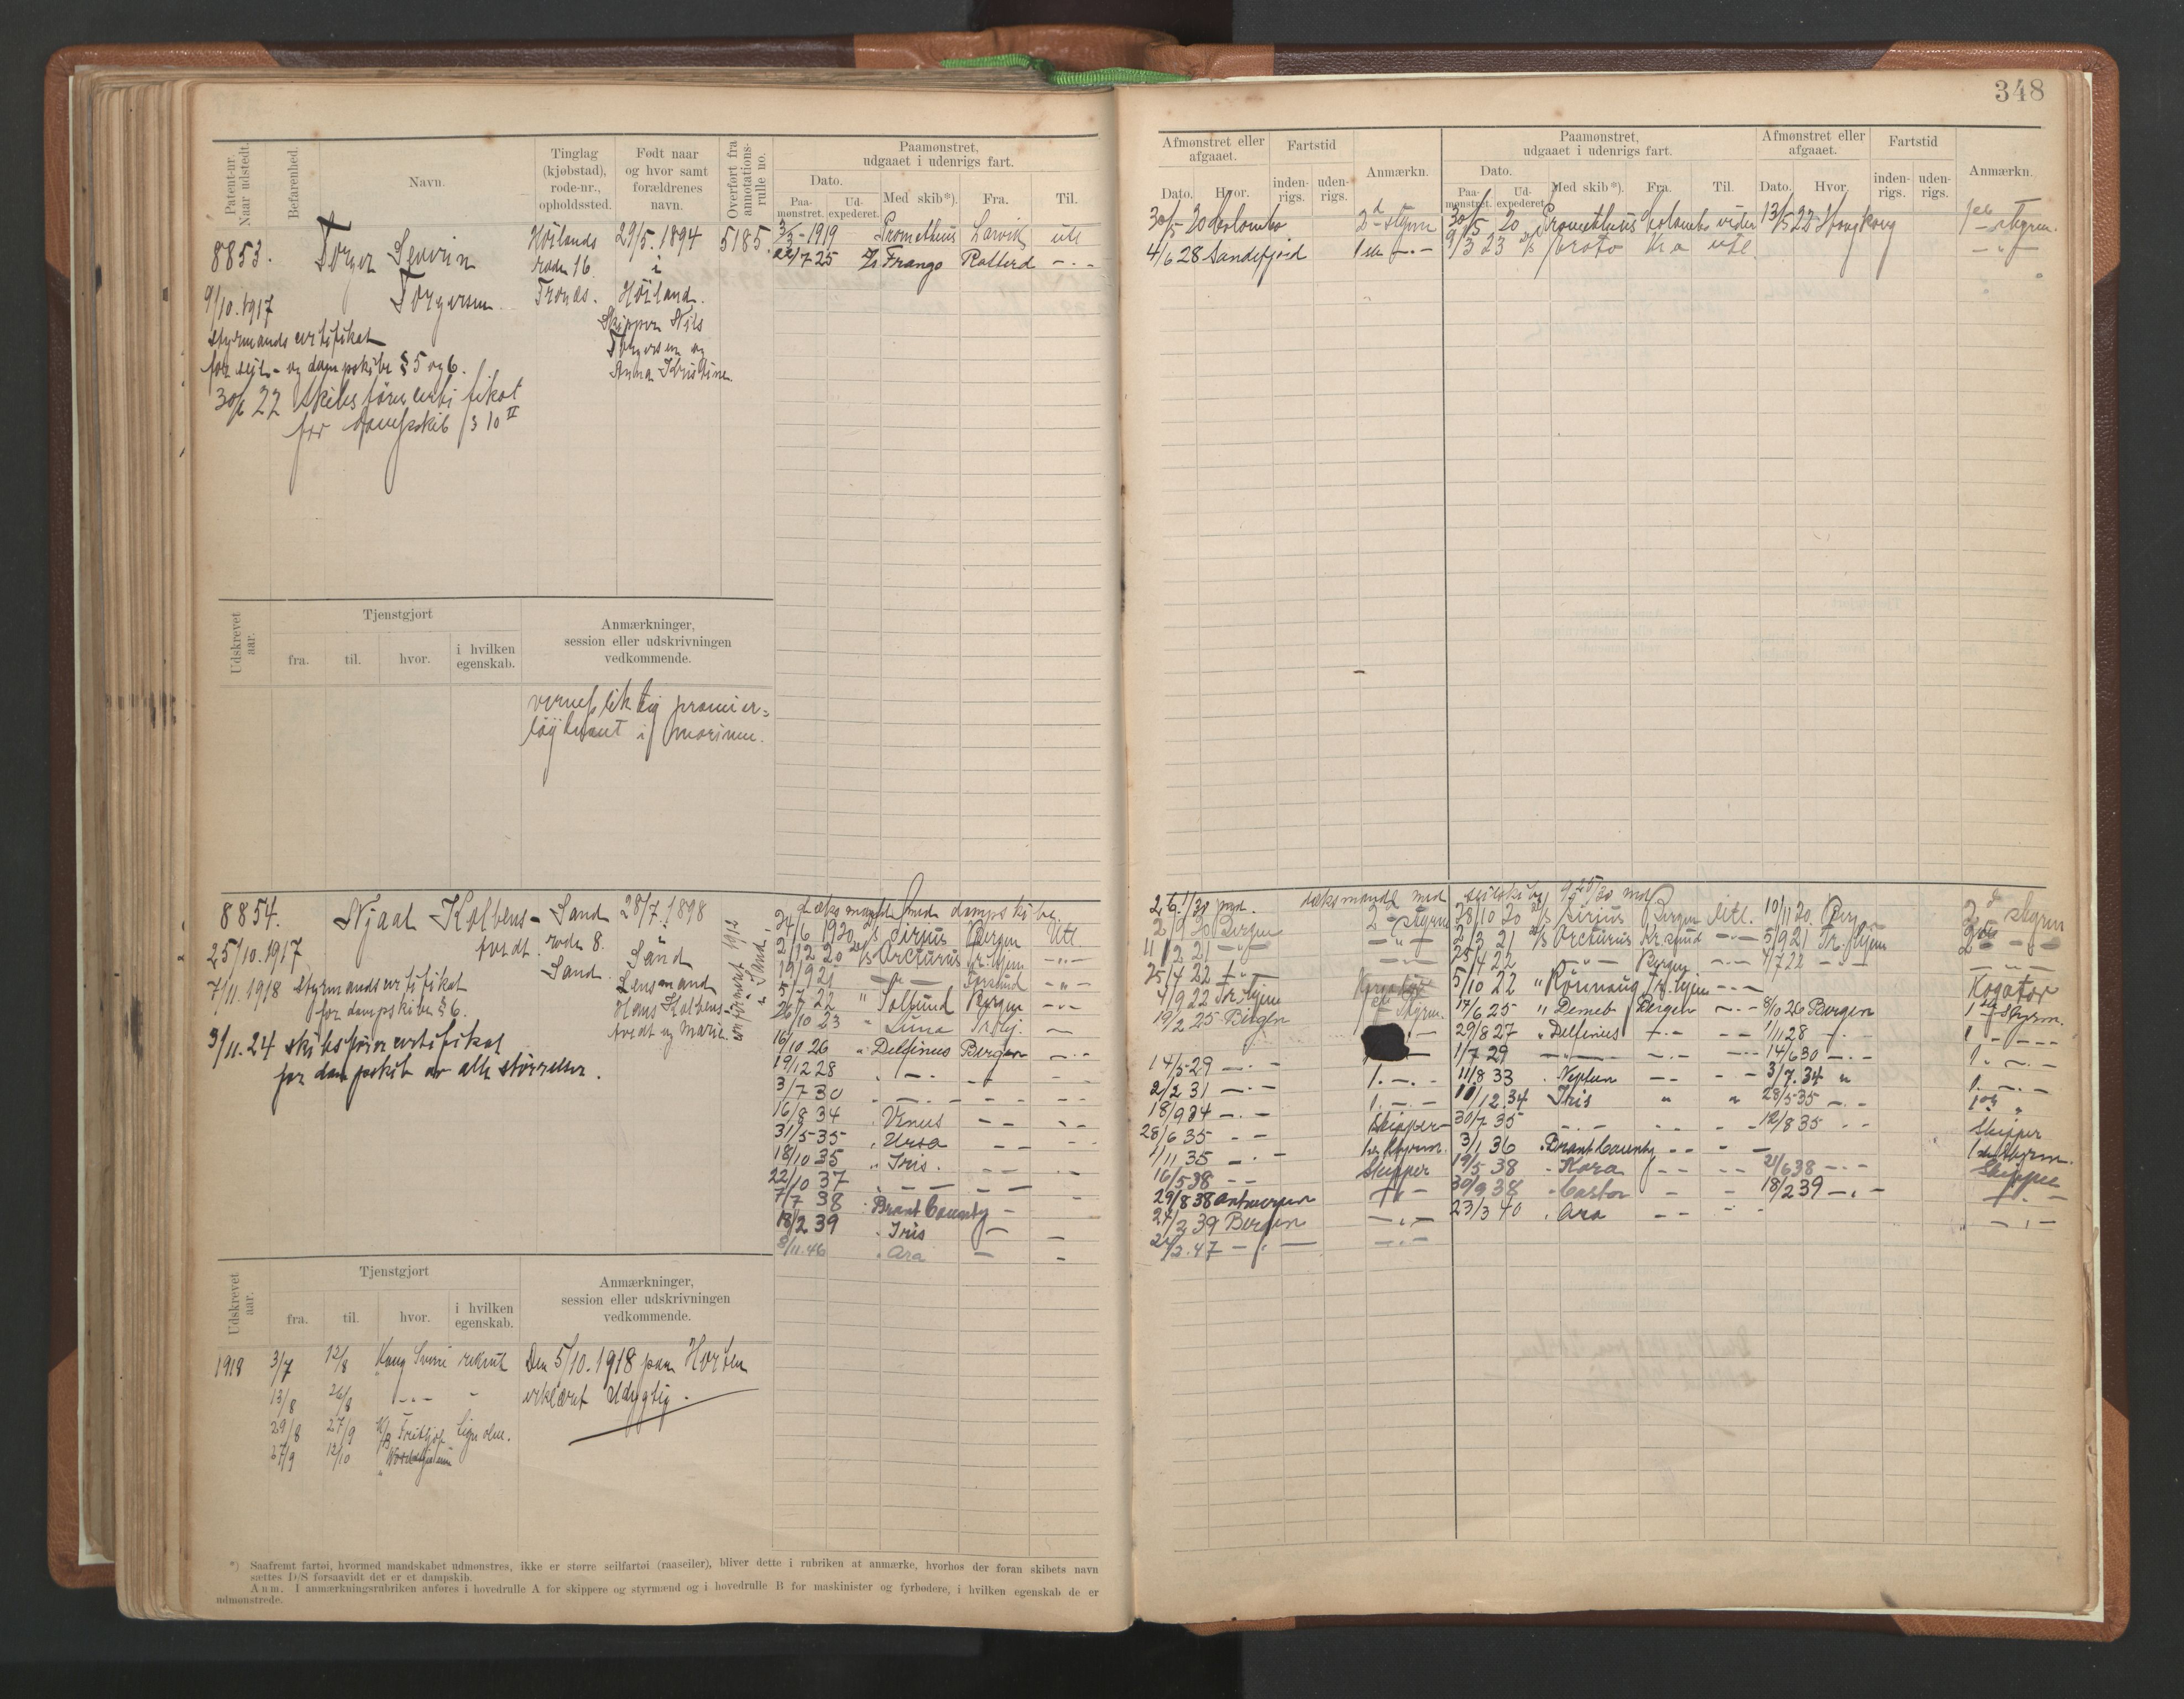 348
Patent-nr. Naar udstedt.
Befarenhed.
Navn.
Tinglag (kjøbstad), rode-nr., opholdssted.
Født naar og hvor samt forældrenes navn.
Overført fra annotations-rulle no.
Paamønstret, udgaaet i udenrigs fart.
Dato.
Paa-mønstret.
Ud-expederet.
Med skib*).
Fra.
Til.
Afmønstret eller afgaaet.
Dato.
Hvor.
Fartstid
inden-rigs.
uden-rigs.
Anmærkn.
Paamønstret, udgaaet i udenrigs fart.
Dato.
Paa-mønstret.
Ud-expederet.
Med skib*).
Fra.
Til.
Afmønstret eller afgaaet.
Dato.
Hvor.
Fartstid
inden-rigs.
uden-rigs.
Anmærkn.
8853.
Torger Severin
Torgersen
Höilands
rode 16.
29/5. 1894
i
Höiland.
Skipper Nils
Torgersen og
Anna Kristine.
5185.
9/10.1917
styrmandscertifikat
for seil- og dampskibe § 5 og 6.
30/6 22 Skibsførercertifikat
for dampskib § 10 II
3/3-1919 Prometheus Larvik utl
22/7-25 D/S Frango Rotterd - . -
30/5-20 Colombo 2d Styrm
4/6 28 Sandefjord 1ste - . -
30/5 20 Prometheus Colombo videre 13/5 22 Hongkong 1ste Styrm.
9/3 23 D/S Proto Kra utl. - " -
Udskrevet aar.
Tjenstgjort
fra.
til.
hvor.
i hvilken egenskab.
Anmærkninger, session eller udskrivningen vedkommende.
vernepliktig premier=
løytnant i marinen.
8854.
Njaal Kolbens-
tvedt.
Sand
rode 8.
Sand.
28/7.1898
Sand
Lensmand
Hans Kolbens-
tvedt og Marie.
konfirmert 1912
i Sand.
25/10.1917
7/11.1918 styrmandscertifikat
for dampskibe § 6.
3/11.24 skibsførercertifikat
for dampskib av alle størrelser.
dæksmandt. med dampskibe.
24/6 1920 D/S Sirius Bergen Utl.
2/12 20 D/S Arcturus Tr.hjem - " -
19/9 21
5/7 22 " Solsund Bergen - " -
26/10 23 " Luna Trhj. -
16/10 26 " Delfinus Bergen - . -
19/12 28 " - . - - -
3/7 30 " - . - - -
16/8 34 . Venus - - - -
31/5-35 . Ursa - - -
18/10 35 " Iris. - - - -
22/10 37 . - - - -
7/7 38 . Brant County - -
18/2 39 . Iris - -
8/11.46 . Ara - -
dæksmandt med seilskibe
2/9 20 Bergen 2d Styrm
11/2 21 - " - - " -
25/4 22 - " -
4/9 22 Tr.hjem
19/2 25 Bergen 1ste Styrm.
14/5-29 - . -
2/2 31 - . - 1. - . -
18/9 34 - . - 1. - . -
28/6 35 - - Skipper
1/11 35 - . - 1ste Styrm.
16/5 38 - - Skipper
29/8 38 Antwerpen - " -
24/2 39 Bergen - . -
24/2.47 - " - - . -
28/10 20 D/S Sirius Bergen Utl. 10/11 20 Berg 2d Styrm
2/3 21 D/S Arcturus Kr.sund - " - 5/9 21 Tr.hjem
25/4 22 - " - Bergen - . - 4/7 22 - " -
5/10 22 " Rönnaug Tr.hjem - . -
17/6 25 " Bergen - . - 8/10 26 Bergen 1ste Styrm.
29/8 27 . Delfinus - . - - - 1/11 28 - . -
1/7 29 - . - - . - 14/6 30 - . - 1. - . -
11/8 33 . Neptun - - - - 3/7.34 " 1. - . -
10/12.34 Iris " " 28/5-35 - . - 1ste "
30/7 35 - . - - - - 12/8 35 - - Skipper
3/1 36 . Brant County - - - 1ste Styrm.
19/5 38 . Kora - - - - 21/6 38 - . - Skipper
30/9 38 . Castor - - 18/2 39 - . - - . -
23/3 40 . Ara - - - - - . -
Udskrevet aar.
Tjenstgjort
fra.
til.
hvor.
i hvilken egenskab.
Anmærkninger, session eller udskrivningen vedkommende.
1918 3/7 12/8 Kong Sverre rekrut
13/8 26/8 - . - -
29/8 27/9 K/B Fritjof
27/9 12/10
Den 5/10.1918 paa Horten
erklæret Udygtig.
*) Saafremt fartøi, hvormed mandskabet udmønstres, ikke er større seilfartøi (raaseiler), bliver dette i rubriken at anmærke, hvorhos der foran skibets navn
sættes D/S forsaavidt det er et dampskib.
Anm. I anmærkningsrubriken anføres i hovedrulle A for skippere og styrmænd og i hovedrulle B for maskinister og fyrbødere, i hvilken egenskab de er
udmønstrede.